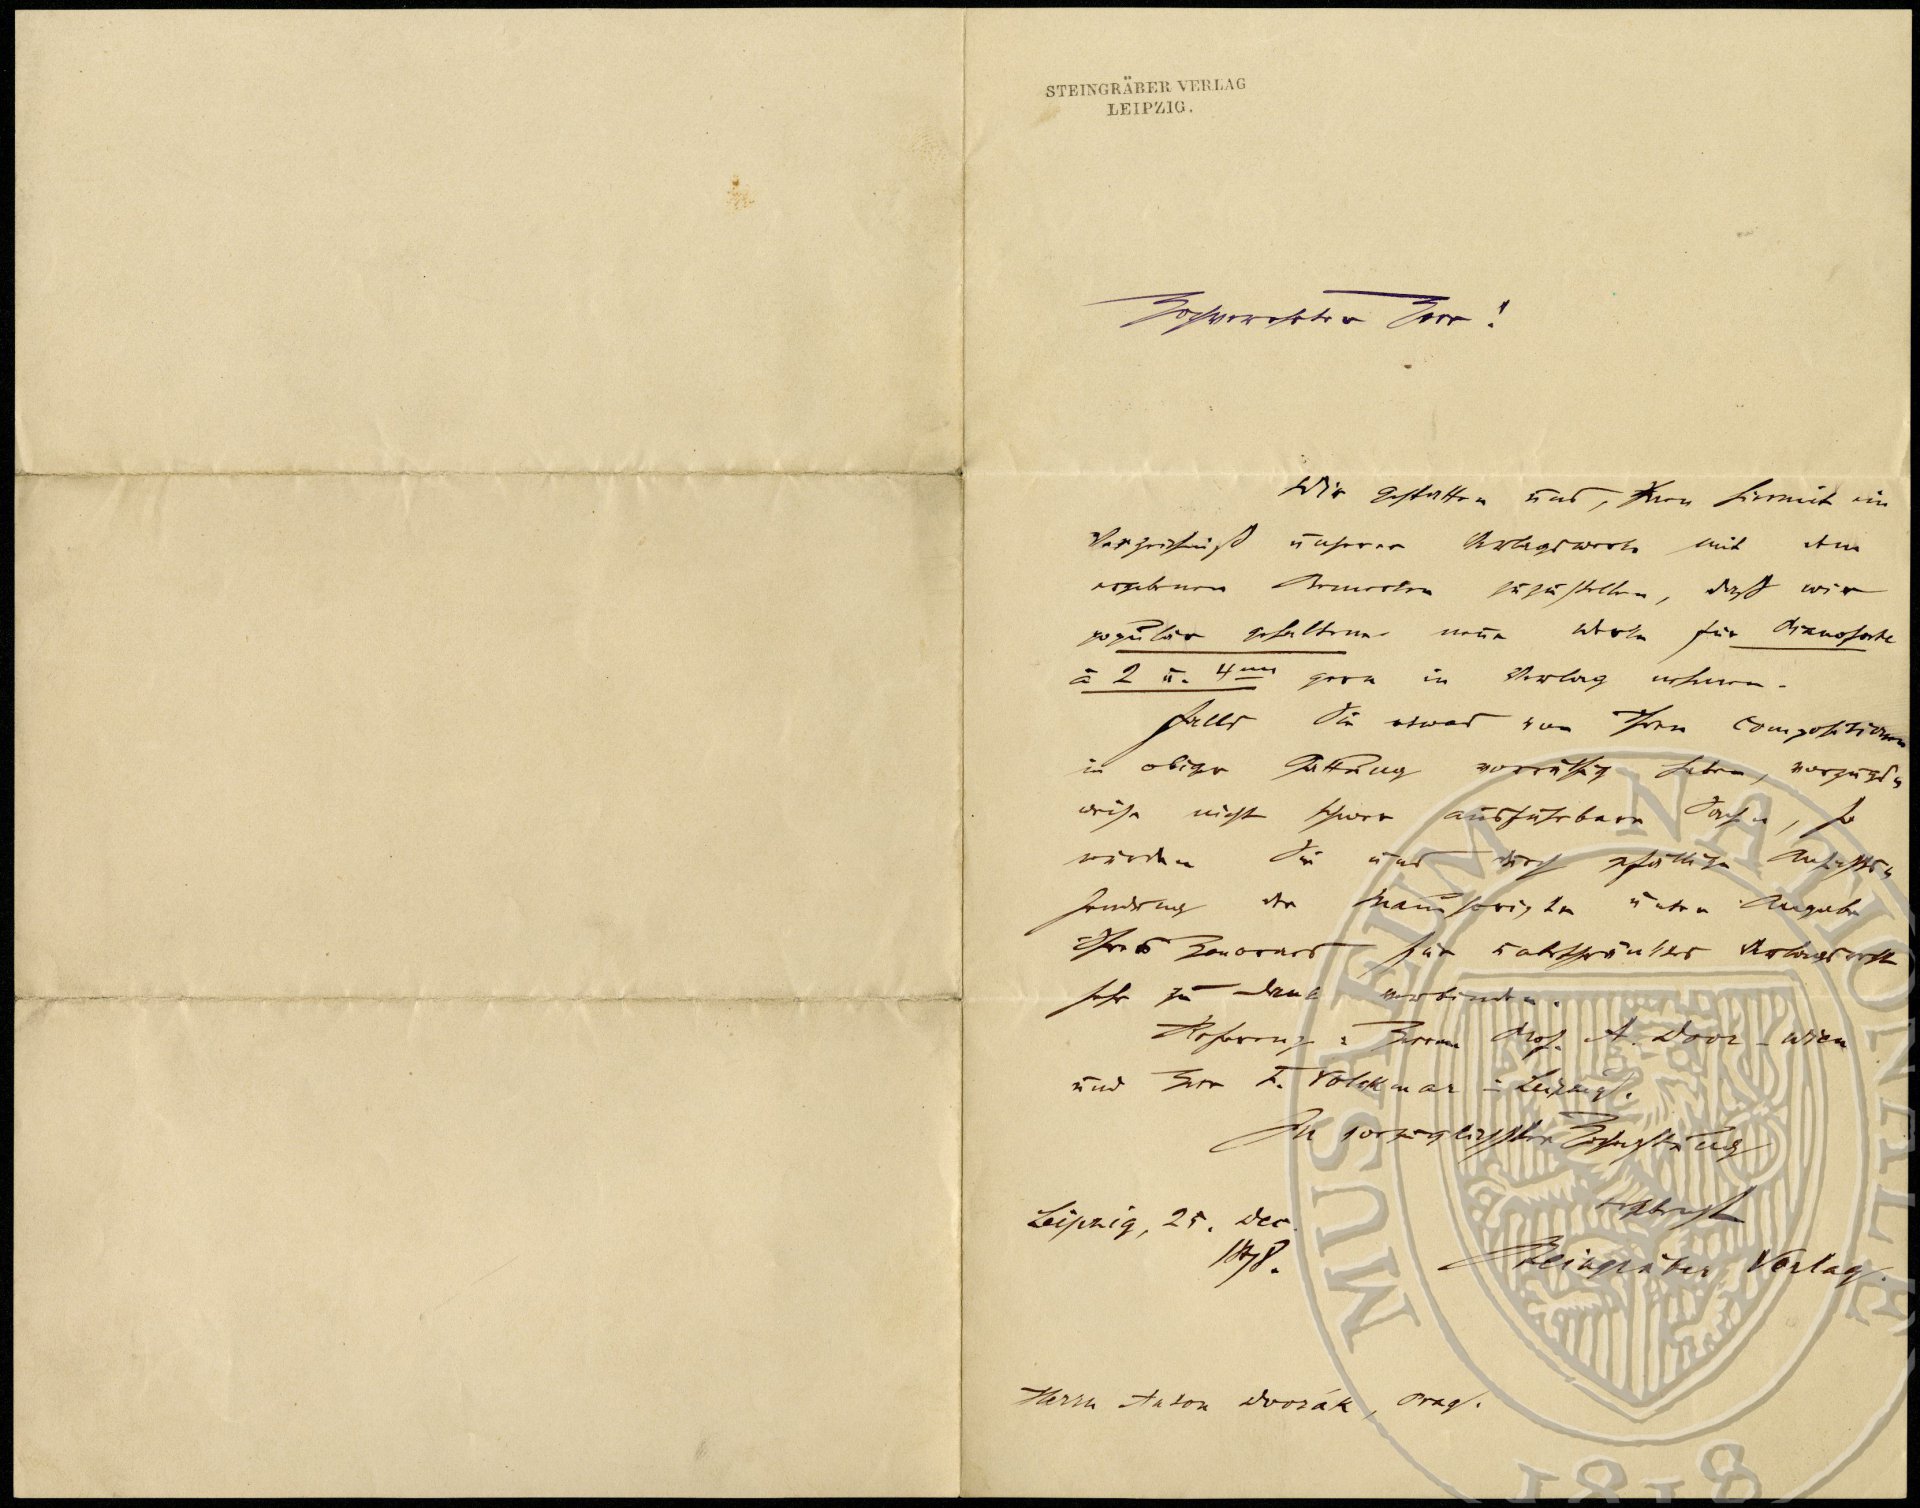 STEINGRÄBER VERLAG
LEIPZIG.
Hochverehrter Herr!
Wir gestatten uns, Ihnen hiermit ein
Verzeichniß unserer Verlagswerke mit dem
ergebenen Bemerken zuzustellen, daß wir
populär gehaltene neue Werke für Pianoforte
à 2 u. 4ms gern in Verlag nehmen.
Falls Sie etwas von Ihren Compositionen
in obiger Gattung vorräthig haben, vorzugs-
weise nicht schwer ausführbare Sachen, so
würden Sie uns durch gefällige Ansichts-
sendung der Manuscripte unter Angabe
Ihres Honorars für unbeschränktes Verlagsrecht
sehr zu Dank verbinden.
Referenz: Herrn Prof. A. Door - Wien
und Herr F. Volckmar - Leipzig.
In vorzüglichster Hochachtung
ergebenst
Leipzig, 25. Dec.
1878.
Steingräber Verlag.
Herrn Anton Dvořák, Prag.
MUSAEUM NATIONALE
1818